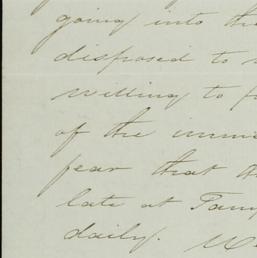 going into the
disposed to
willing to
of the
fear that
late at
daily.